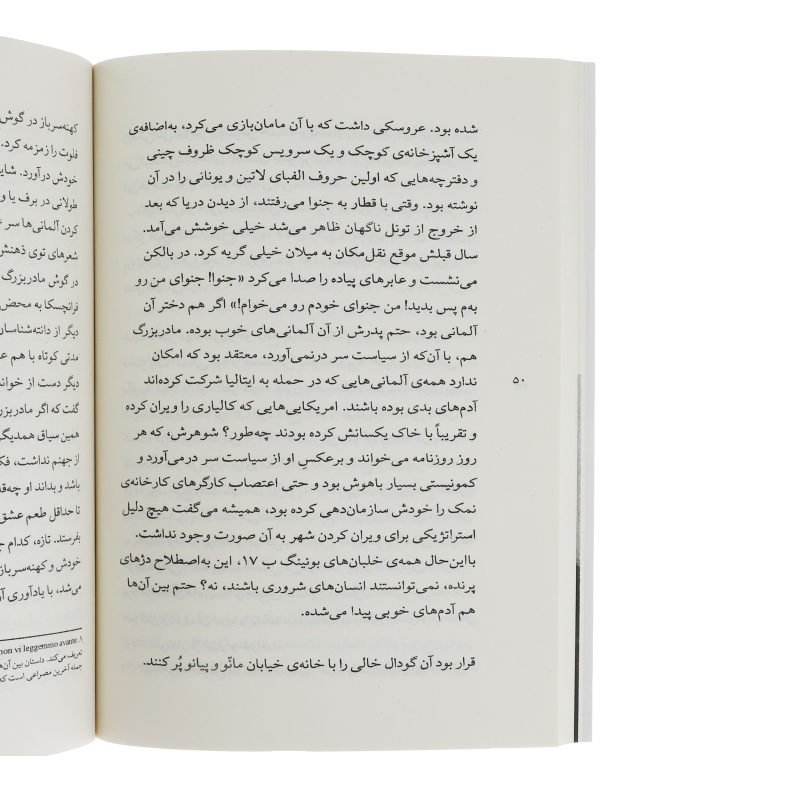 شده بود. عروسکی داشت که با آن مامان‌بازی می‌کرد، به‌اضافه‌ی
یک آشپزخانه‌ی کوچک و یک سرویس کوچک ظروف چینی
و دفترچه‌هایی که اولین حروف الفبای لاتین و یونانی را در آن
نوشته بود. وقتی با قطار به جنوا می‌رفتند، از دیدن دریا که بعد
از خروج از تونل ناگهان ظاهر می‌شد خیلی خوشش می‌آمد.
سال قبلش موقع نقل‌مکان به میلان خیلی گریه کرد. در بالکن
می‌نشست و عابرهای پیاده را صدا می‌کرد «جنوا! جنوای من رو
به‌م پس بدید! من جنوای خودم رو می‌خوام!» اگر هم دختر آن
آلمانی بود، حتم پدرش از آن آلمانی‌های خوب بوده. مادربزرگ
هم، با آن‌که از سیاست سر درنمی‌آورد، معتقد بود که امکان
ندارد همه‌ی آلمانی‌هایی که در حمله به ایتالیا شرکت کرده‌اند
آدم‌های بدی بوده باشند. امریکایی‌هایی که کالیاری را ویران کرده
و تقریباً با خاک یکسانش کرده بودند چه‌طور؟ شوهرش، که هر
روز روزنامه می‌خواند و برعکسِ او از سیاست سر درمی‌آورد و
کمونیستی بسیار باهوش بود و حتی اعتصاب کارگرهای کارخانه‌ی
نمک را خودش سازمان‌دهی کرده بود، همیشه می‌گفت هیچ دلیل
استراتژیکی برای ویران کردن شهر به آن صورت وجود نداشت.
بااین‌حال همه‌ی خلبان‌های بوئینگ ب ۱۷، این به‌اصطلاح دژهای
پرنده، نمی‌توانستند انسان‌های شروری باشند، نه؟ حتم بین آن‌ها
هم آدم‌های خوبی پیدا! می‌شده.
قرار بود آن گودال خالی را با خانه‌ی خیابان مانّو و پیانو پُر کنند.
۵۰
کهنه‌سرباز در گوش
فلوت را زمزمه کرد.
خودش درآورد. شای
طولانی در برف یا و
کردن آلمانی‌ها سر
شعرهای توی ذهنش
در گوش مادربزرگ
فرانچسکا به محض
دیگر از دانته‌شناسان
مدتی کوتاه با هم
دیگر دست از خواند
گفت که اگر مادربزر
همین سیاق همدیگر
از جهنم نداشت، فک
باشد و بداند او چه‌قد
تا حداقل طعم عشق
بفرستد. تازه، کدام
خودش و کهنه‌سرباز
می‌شد، با یادآوری آ
۱. non vi leggemmo avante
تعریف می‌کند. داستان بین آن‌ها
جمله آخرین مصراعی است که